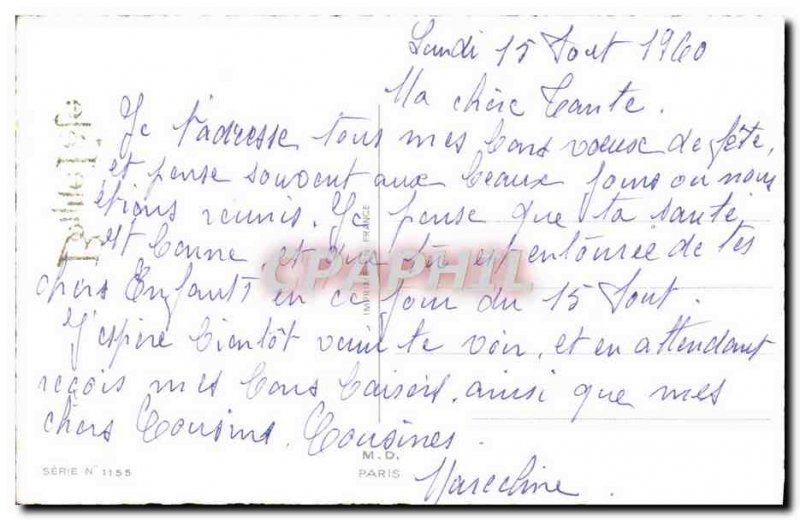 Lundi 15 Aout 1960
Ma chère Tante.
Je t'adresse tous mes bons voeux de fête,
et pense souvent aux beaux jours ou nous
étions reunis. Je pense que ta santé
est bonne, et que tu es entourée de tes
chers Enfants en ce jour du 15 Aout.
J'espère bientôt venir te voir, et en attendant
reçois mes bons baisers, ainsi que mes
chers Cousins. Cousines.
Marceline
Bonne Fête
IMPRIMÉ EN FRANCE
CPAPHIL
M.D.
PARIS
SÉRIE N° 1155